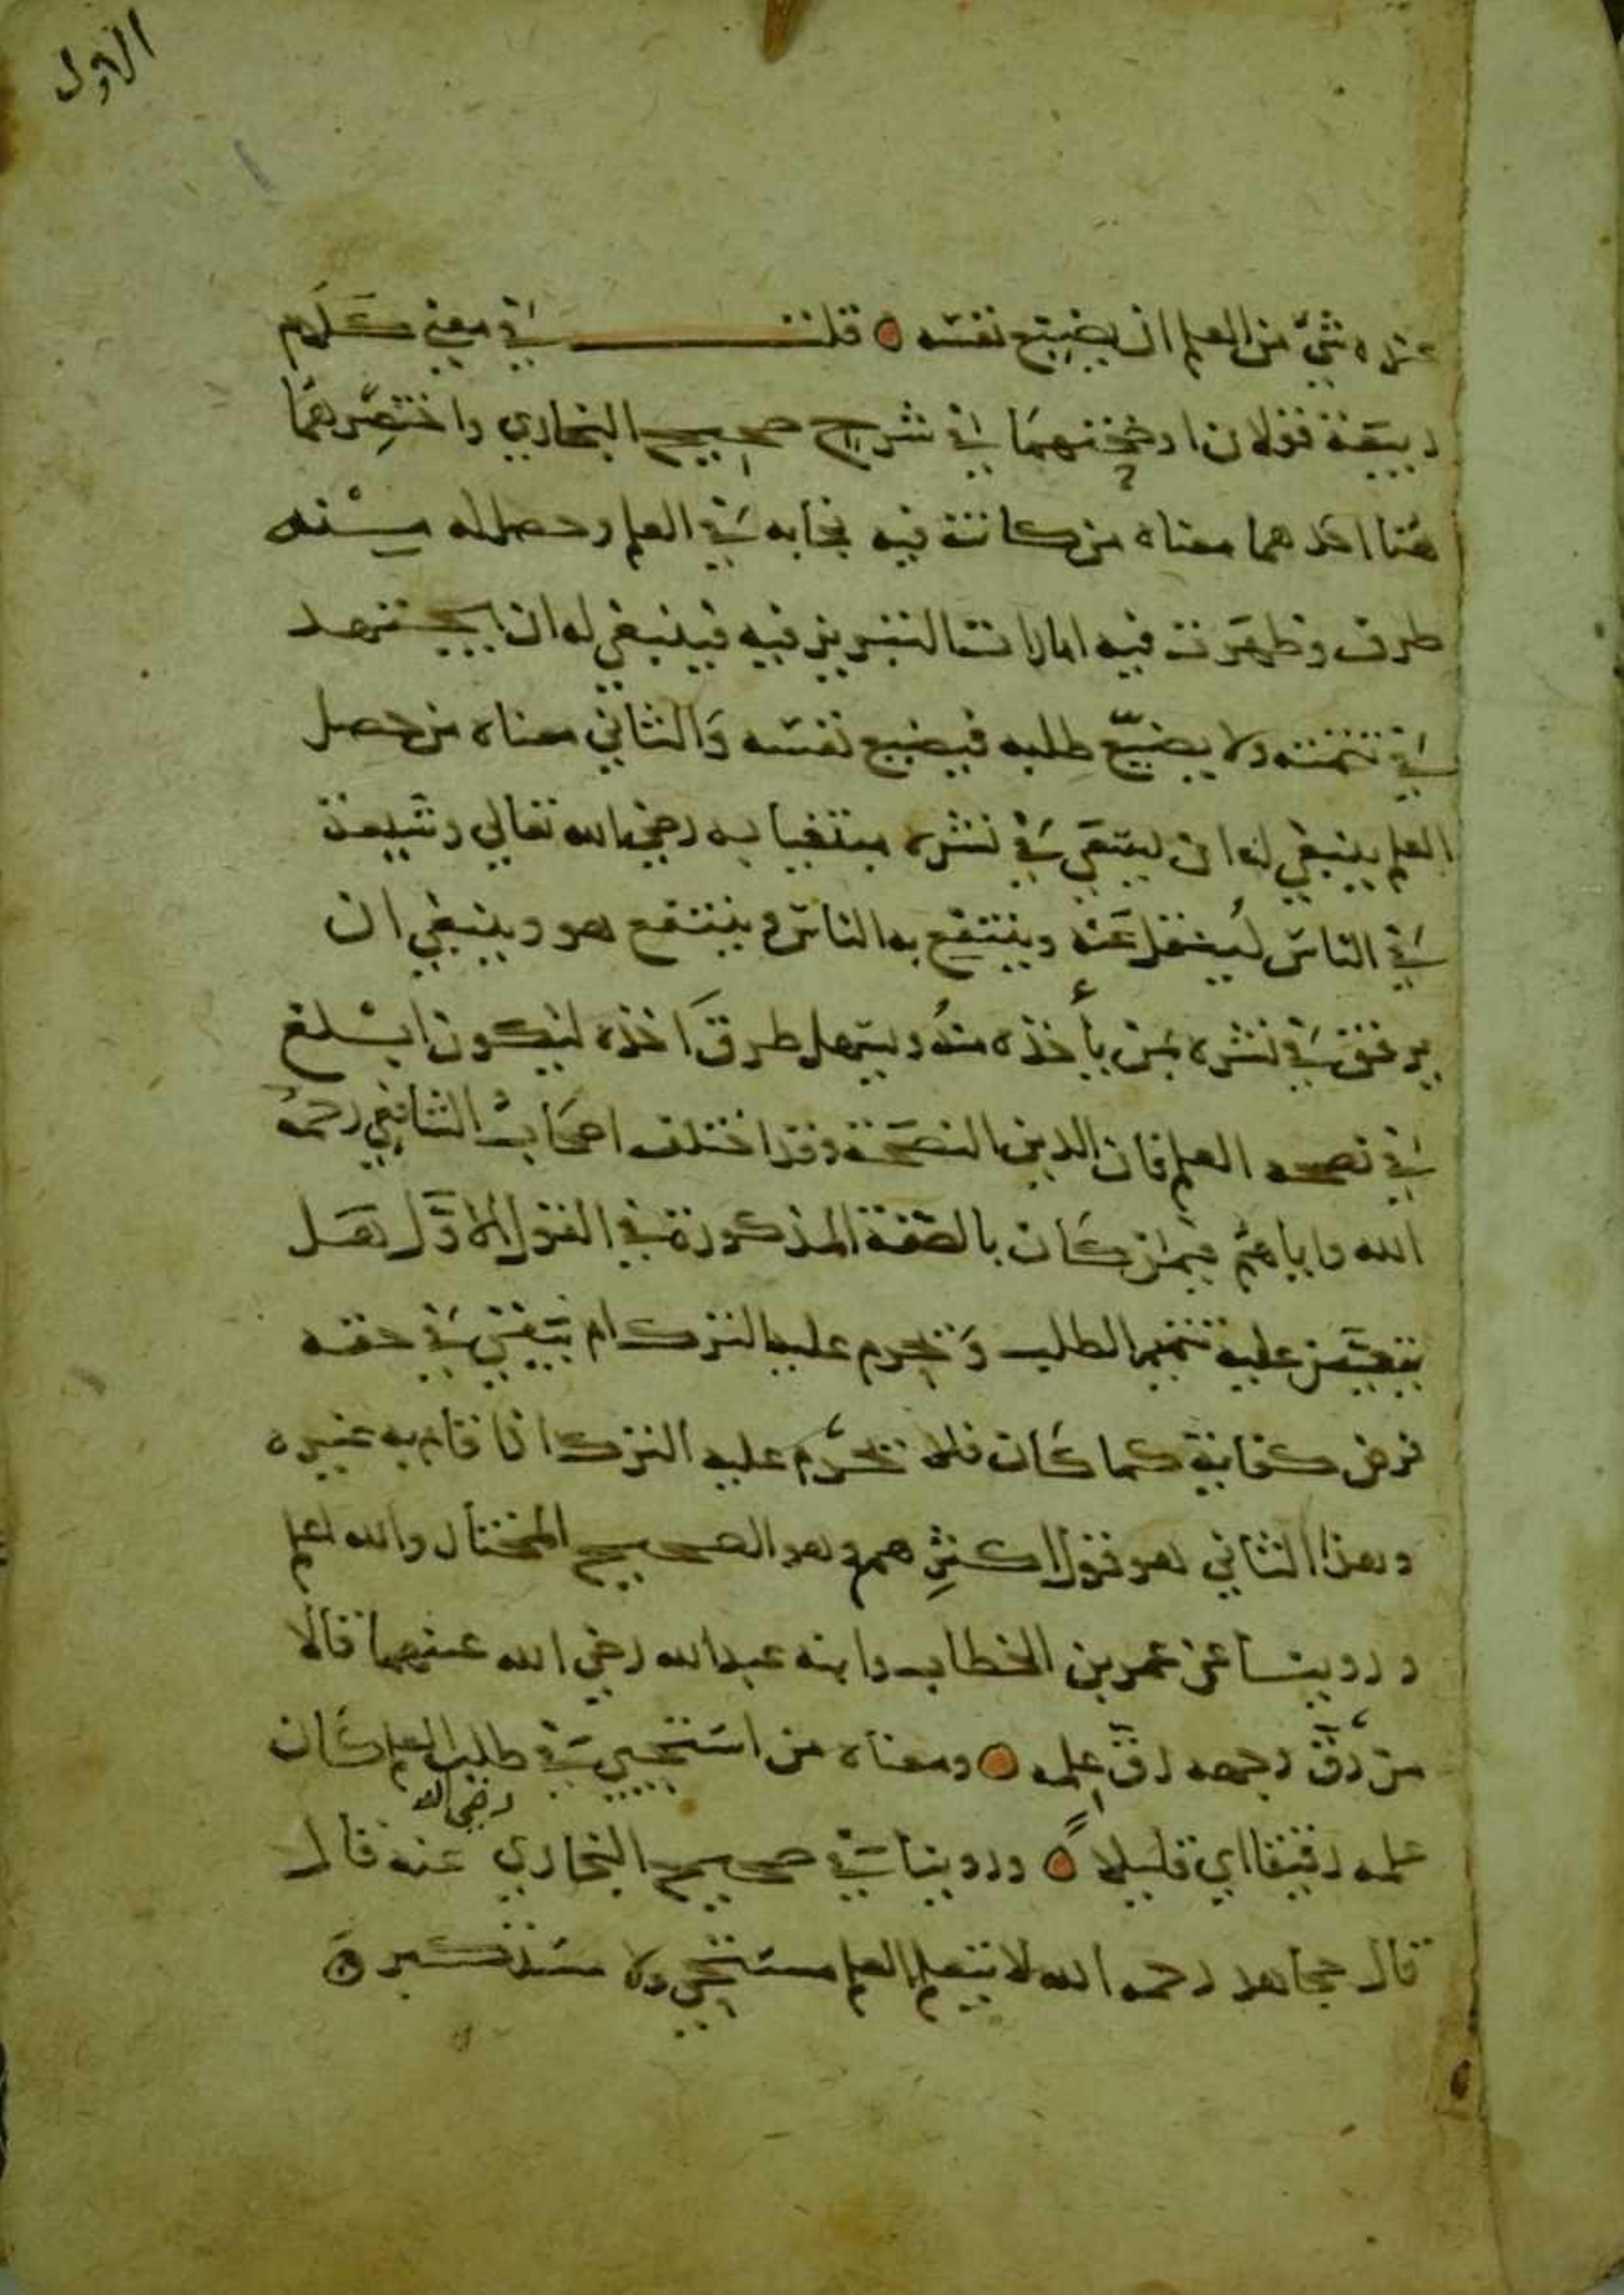 الاول
عنده شيء من العلم ان يضيع نفسه ه قلت في معنى كلام
ربيعة قولان اوضحتهما في شرح صحيح البخاري واختصرهما
هنا احدهما معناه من كانت فيه نجابه في العلم وحصل له منه
طرف وظهرت فيه امارات التبريز فيه فينبغي له ان يجتهد
في تتمته ولا يضيع طلبه فيضيع نفسه والثاني معناه من حصل
العلم ينبغي له ان يسعى في نشره مبتغيا به رضي الله تعالى ويشيعه
في الناس لينقل عنه وينتفع به الناس وينتفع هو وينبغي ان
يرفق في نشره بمن يأخذه منه ويسهل طرق اخذه ليكون ابلغ
في نصحه العلم فان الدين النصحة وقد اختلف اصحاب الشافعي رحمه
الله واياهم فيمن كان بالصفة المذكورة في القول الاول هل
يتعين عليه تتميم الطلب ويحرم عليه الترك ام يبقى في حقه
فرض كفاية كما كان فلا يحرم عليه الترك اذا قام به غيره
وهذا الثاني هو قول اكثرهم وهو الصحيح المختار والله اعلم
وروينا عن عمر بن الخطاب وابنه عبد الله رضي الله عنهما قالا
من رق وجهه رق علمه ه ومعناه من استحيى في طلب العلم كان
علمه رقيقا اي قليلا ه وروينا في صحيح البخاري رضي الله عنه قال
قال مجاهد رحمه الله لا يتعلم العلم مستحي ولا مستكبر ه